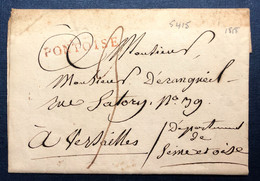 5415
1815
PONTOISE
Monsieur
Monsieur
rue Satory, No. 79.
à Versailles
Département
de
Seine et oise